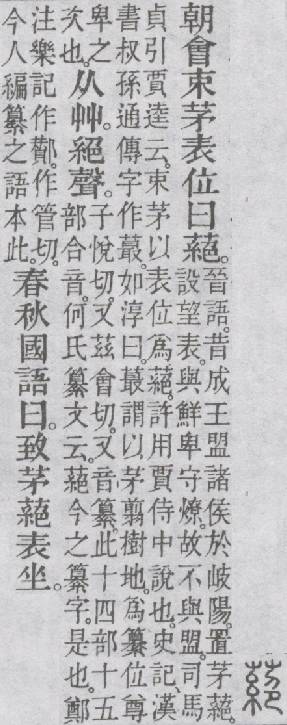 蕝
朝會束茅表位曰蕝。
晉語。昔成王盟諸侯於岐陽。置茅蕝。
設望表。與鮮卑守燎。故不與盟。司馬
貞引賈逵云。束茅以表位爲蕝。許用賈侍中說也。史記、漢
書叔孫通傳字作蕞。如淳曰。蕞謂以茅翦樹地。爲纂位尊
卑之
次也。
从艸。絕聲。
子悅切。又茲會切。又音纂。此十四部十五
部合音。何氏纂文云。蕝今之纂字。是也。鄭
注樂記作酇。作管切。
今人編纂之語本此。
春秋國語曰。致茅蕝表坐。